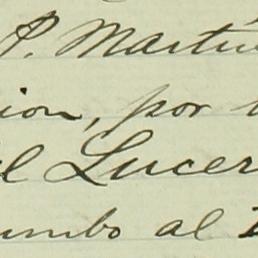 P. Martin
ion, por
el Lucer
umbo al